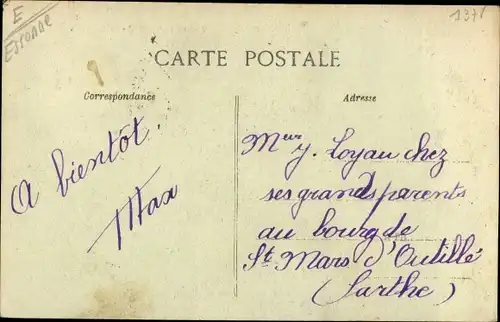 E
Essonne
137
CARTE POSTALE
Correspondance
Adresse
A bientôt.
Max
Meur y. Loyau chez
ses grands parents
au bourg de
St Mars d'Outillé
(Sarthe)